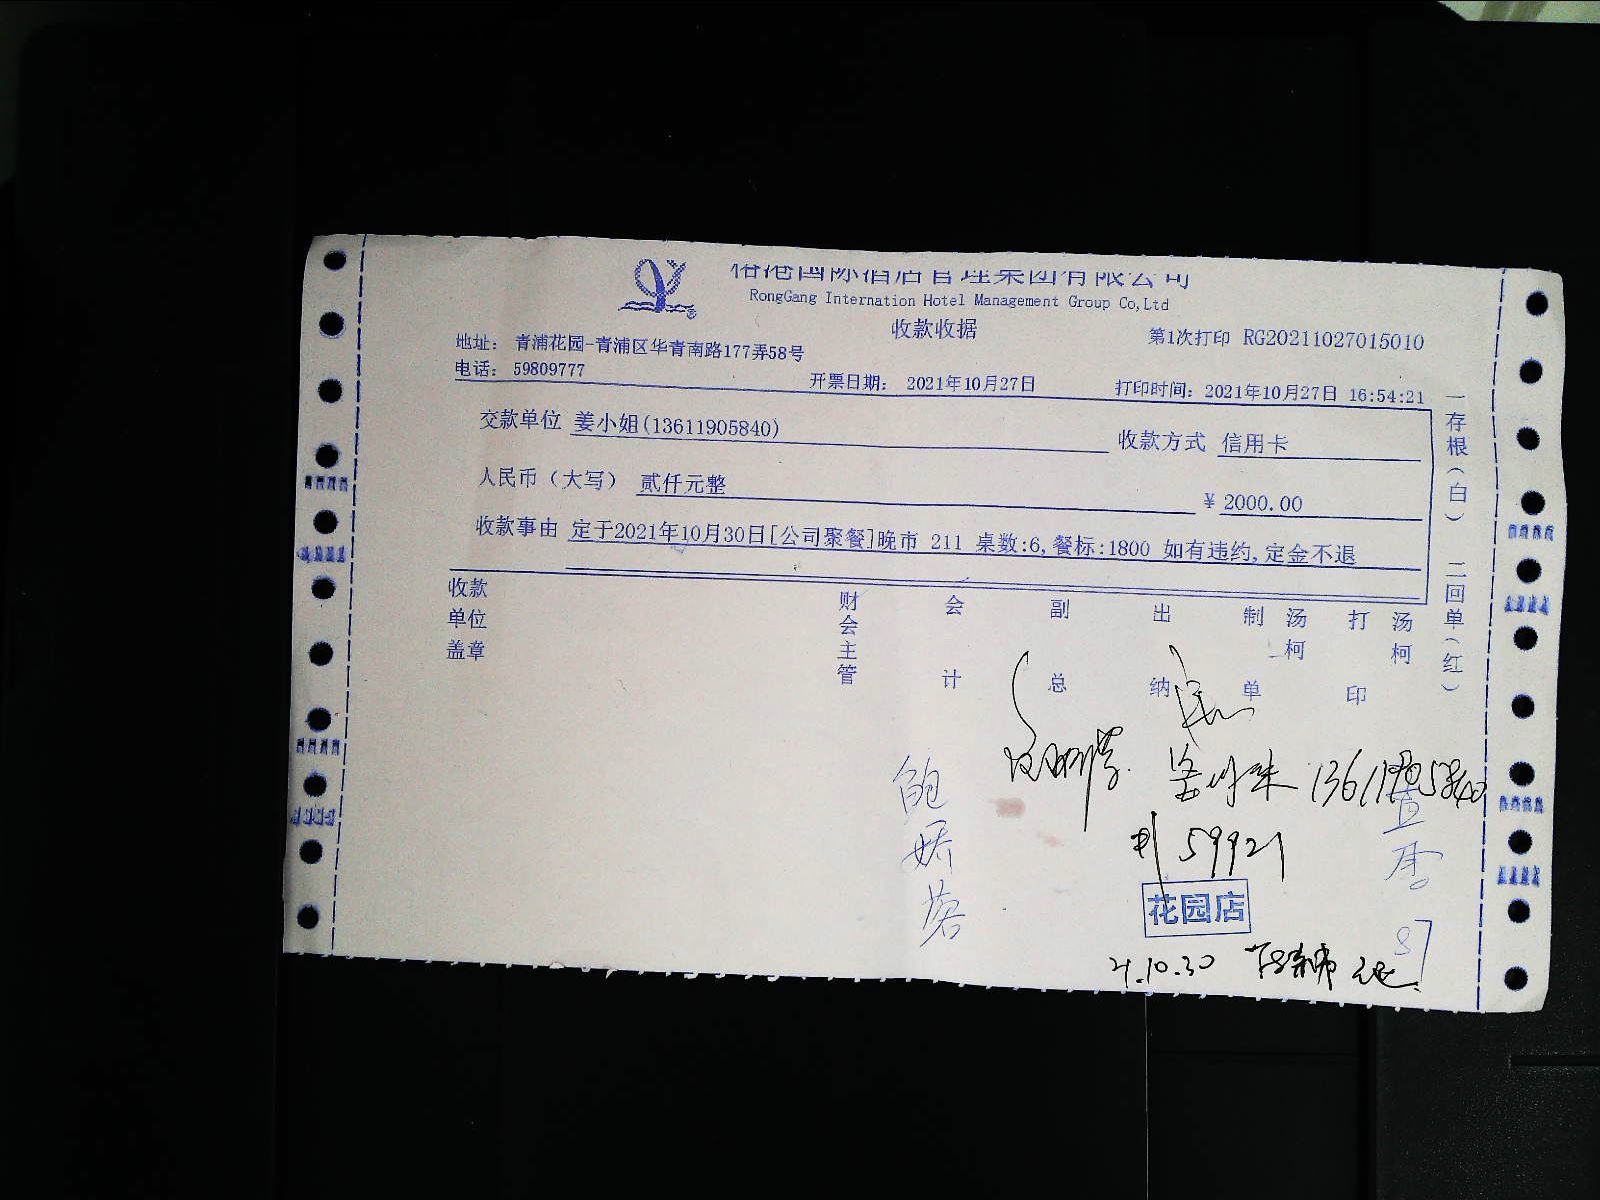 国际酒店管理集团有限公司
RongGang Internation Hotel Management Group Co,Ltd
收款收据
第1次打印 RG20211027015010
地址： 青浦花园-青浦区华青南路177弄58号
电话： 59809777
开票日期： 2021年10月27日
打印时间：2021年10月27日 16:54:21
交款单位 姜小姐(13611905840)
收款方式 信用卡
人民币（大写） 贰仟元整
¥ 2000.00
收款事由 定于2021年10月30日[公司聚餐]晚市 211 桌数:6,餐标:1800 如有违约,定金不退
一存根（白） 二回单（红）
收款单位盖章
财会主管
会计
副总
出纳
制单
汤柯
打印
汤柯
13611905840
59921
花园店
21.10.30
87